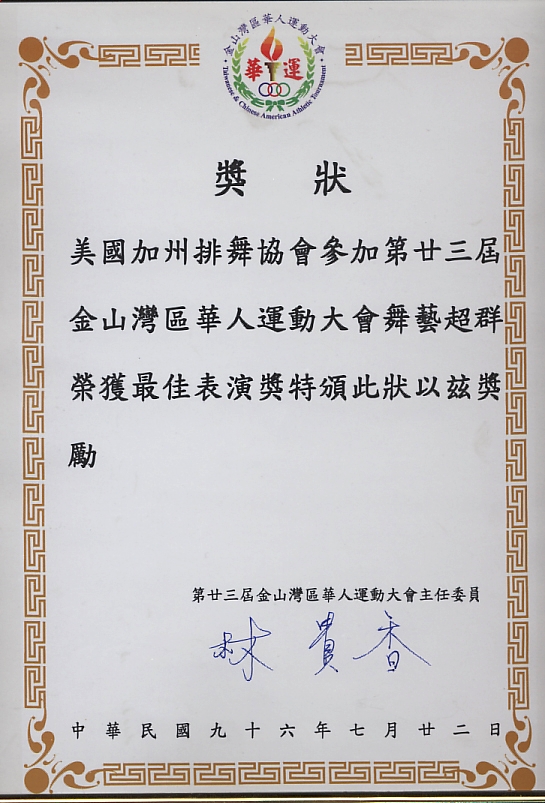 金山灣區華人運動大會
華運
Taiwanese & Chinese American Athletic Tournament
獎狀
美國加州排舞協會參加第廿三屆
金山灣區華人運動大會舞藝超群
榮獲最佳表演獎特頒此狀以茲獎
勵
第廿三屆金山灣區華人運動大會主任委員
林貴香
中華民國九十六年七月廿二日